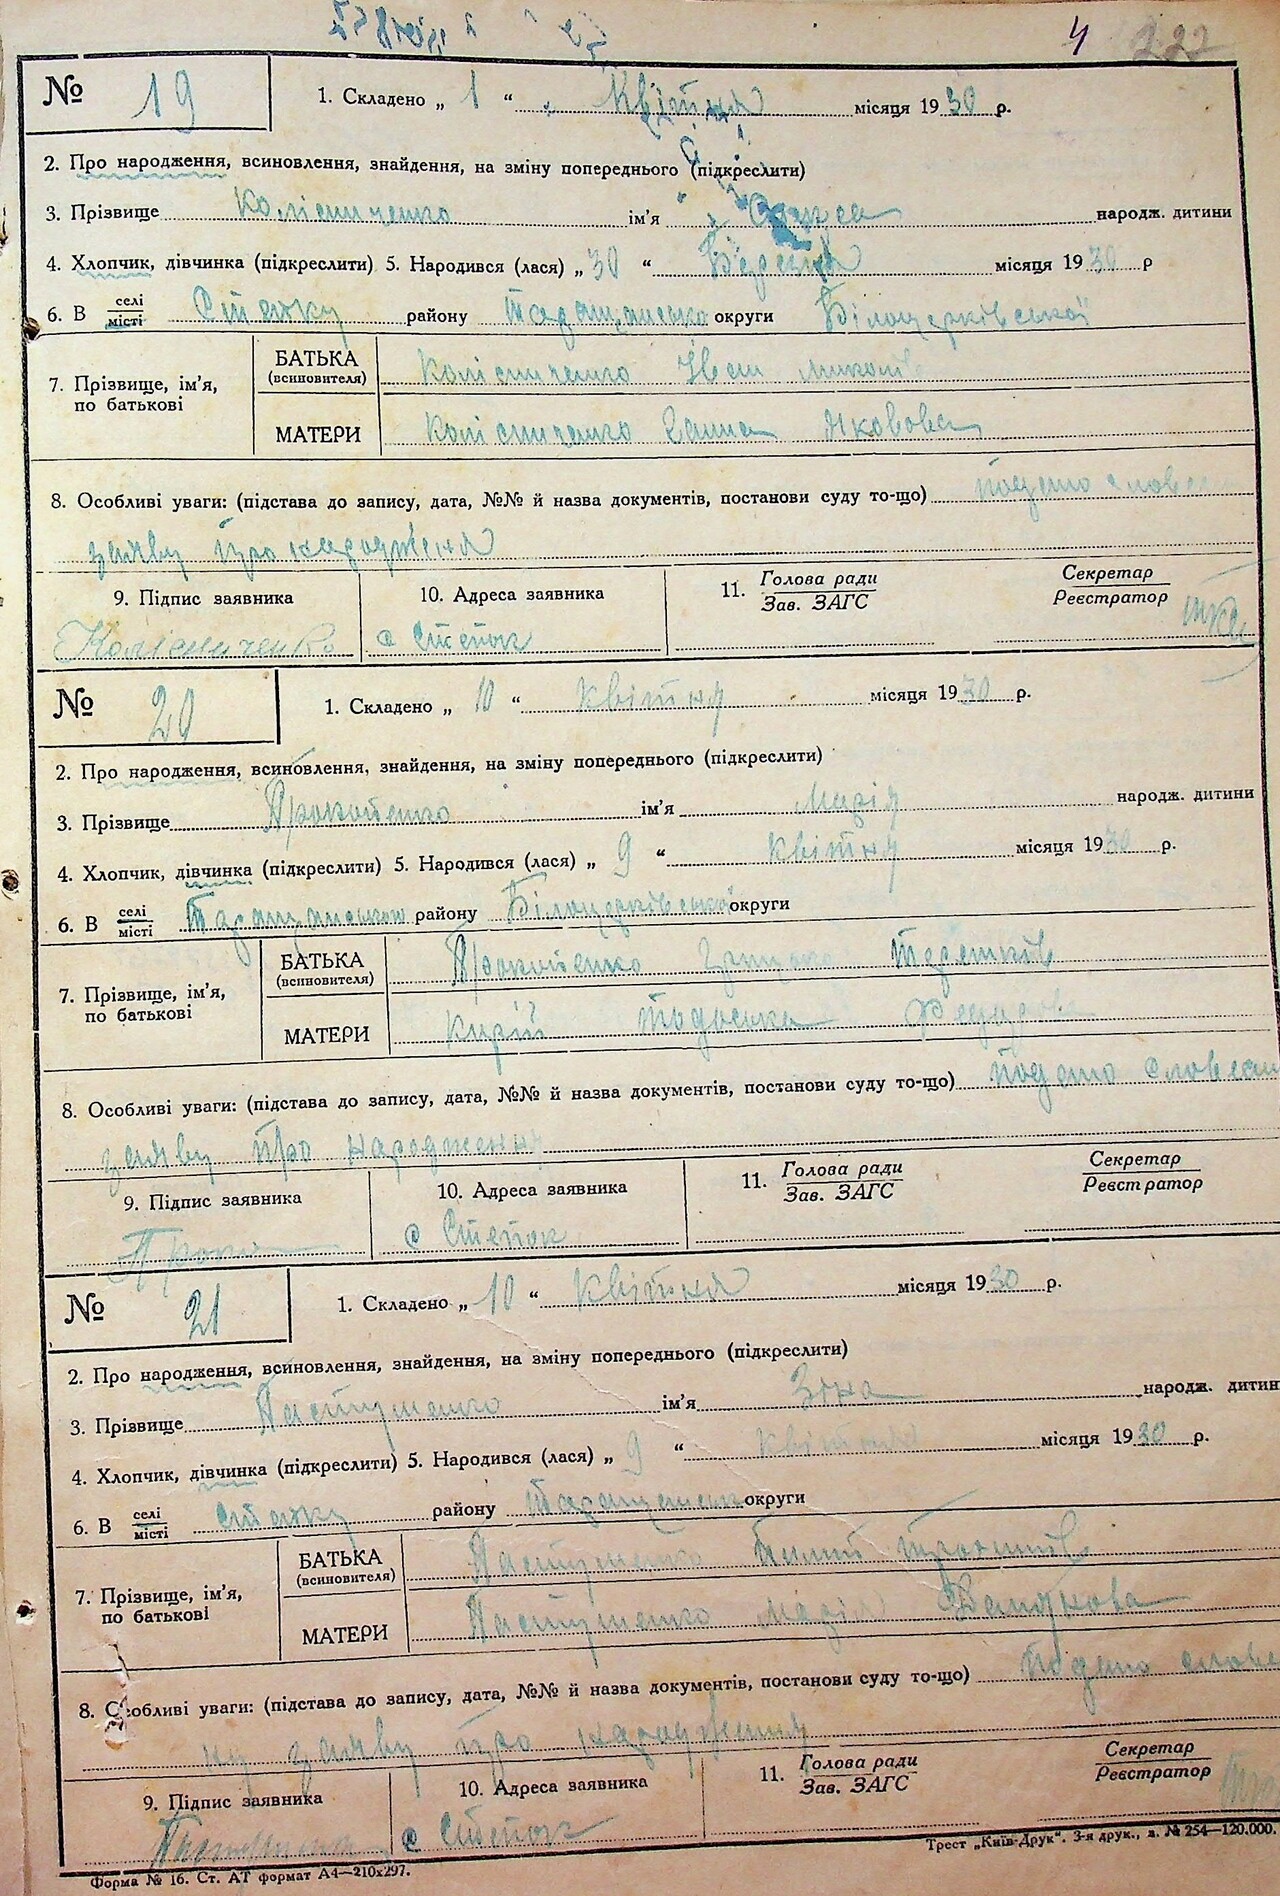 4 222
№ 19 1. Складено „ 1 “ Квітня місяця 1930 р.
2. Про народження, всиновлення, знайдення, на зміну попереднього (підкреслити)
3. Прізвище Колісниченко ім'я народж. дитини
4. Хлопчик, дівчинка (підкреслити) 5. Народився (лася) „ 30 “ Березня місяця 1930 р
6. В селі/місті Степку району Таращансько округи Білоцерківської
7. Прізвище, ім'я, по батькові
БАТЬКА (всиновителя) Колісниченко Іван Миколів
МАТЕРИ Колісниченко Ганна Яковова
8. Особливі уваги: (підстава до запису, дата, №№ й назва документів, постанови суду то-що) подано словесн
заяву про народження
9. Підпис заявника 10. Адреса заявника 11. Голова ради/Зав. ЗАГС Секретар/Реєстратор
Колісниченко с Степок
№ 20 1. Складено „ 10 “ Квітня місяця 1930 р.
2. Про народження, всиновлення, знайдення, на зміну попереднього (підкреслити)
3. Прізвище Прокопенко ім'я Марія народж. дитини
4. Хлопчик, дівчинка (підкреслити) 5. Народився (лася) „ 9 “ Квітня місяця 1930 р.
6. В селі/місті Таращанського району Білоцерківської округи
7. Прізвище, ім'я, по батькові
БАТЬКА (всиновителя) Прокопенко Терешків
МАТЕРИ Кирій Тодоська Федорова
8. Особливі уваги: (підстава до запису, дата, №№ й назва документів, постанови суду то-що) подано словесн
заяву про народження
9. Підпис заявника 10. Адреса заявника 11. Голова ради/Зав. ЗАГС Секретар/Реєстратор
Проко с Степок
№ 21 1. Складено „ 10 “ Квітня місяця 1930 р.
2. Про народження, всиновлення, знайдення, на зміну попереднього (підкреслити)
3. Прізвище Пастушенко ім'я Зіна народж. дитин
4. Хлопчик, дівчинка (підкреслити) 5. Народився (лася) „ 9 “ Квітня місяця 1930 р.
6. В селі/місті Степку району Таращанськ округи
7. Прізвище, ім'я, по батькові
БАТЬКА (всиновителя) Пастушенко Пилип
МАТЕРИ Пастушенко Марія
8. Особливі уваги: (підстава до запису, дата, №№ й назва документів, постанови суду то-що) подано слове
ну заяву про народження
9. Підпис заявника 10. Адреса заявника 11. Голова ради/Зав. ЗАГС Секретар/Реєстратор
с Степок
Форма № 16. Ст. АТ формат А4—210х297. Трест „Київ-Друк“. 3-я друк., з. № 254—120.000.